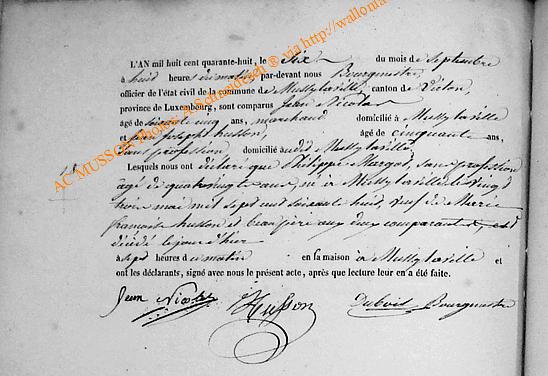 L'AN mil huit cent quarante-huit, le Six du mois de Septembre
à huit heures du matin, par-devant nous Bourgmestre,
officier de l'état civil de la commune de Mussy la ville, canton de Virton,
province de Luxembourg, sont comparus Jean Nicolas
âgé de soixante cinq ans, marchand domicilié à Mussy la ville
et Jean Joseph husson, âgé de cinquante ans,
Sans profession domicilié audit Mussy la ville,
Lesquels nous ont déclaré que Philippe Margot, Sans profession
âgé de quatrevingts ans, né à Mussy la ville le vingt
trois mai mil sept cent soixante huit, veuf de Marie
françoise husson et beau père aux deux comparants, est
décédé le jour d'hier
à sept heures du matin en sa maison à Mussy la ville et
ont les déclarants, signé avec nous le présent acte, après que lecture leur en a été faite.
Jean Nicolas Husson Dubois Bourgmestre
AC MUSSON Thomas A. Schmidtzeh ® via http://wallonia